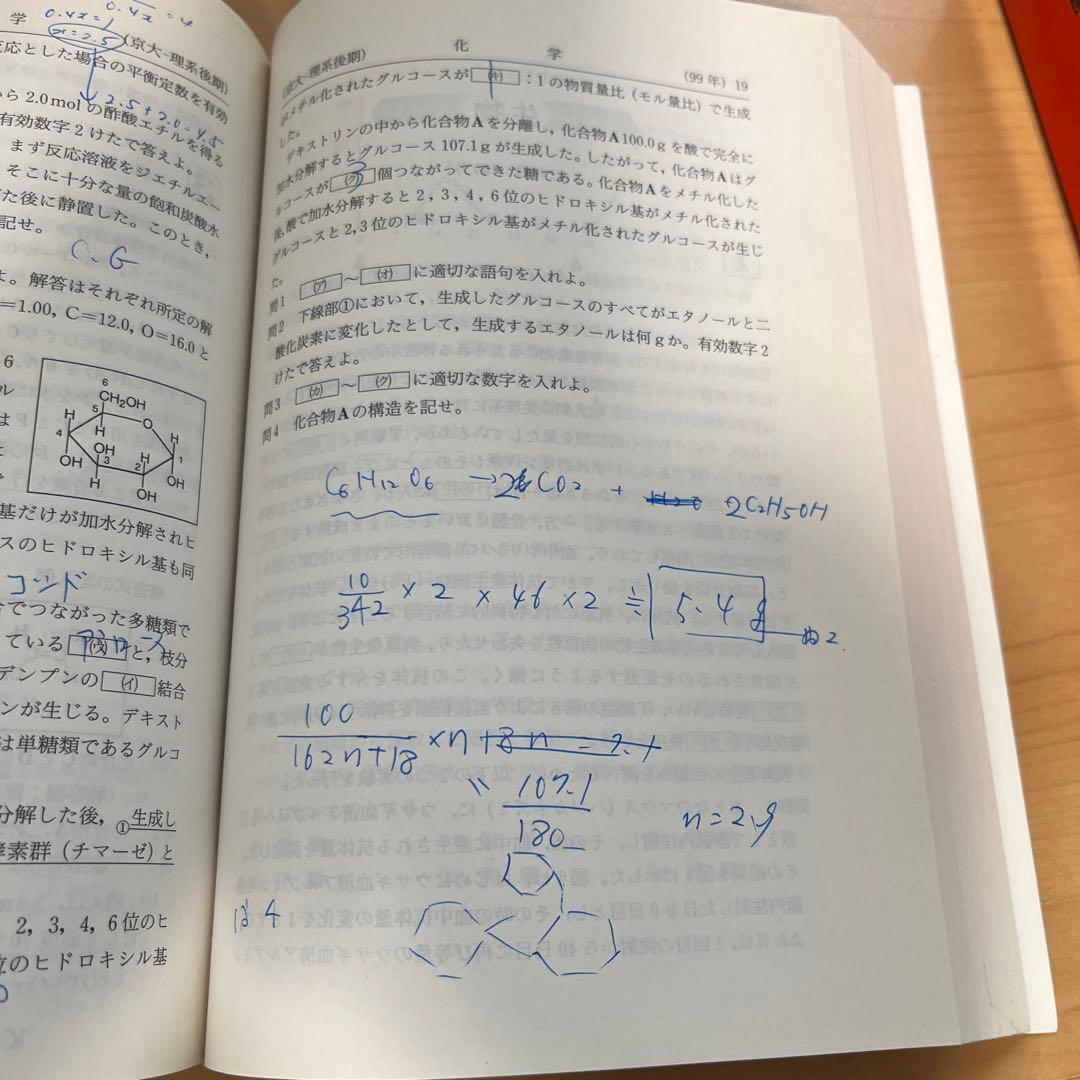 0.4x=1
x=2.5
学 (京大-理系後期)
反応とした場合の平衡定数を有効
2.5+2.0=4.5
から 2.0molの酢酸エチルを得る
有効数字2けたで答えよ。
まず反応溶液をジエチルエー
そこに十分な量の飽和炭酸水
た後に静置した。このとき,
記せ。
C. G
よ。解答はそれぞれ所定の解
=1.00, C=12.0, O=16.0と
6
CH₂OH
5
O
H
H
H
4
OH
3
2
1
OH
H
H
OH
OH
基だけが加水分解されヒ
スのヒドロキシル基も同
でつながった多糖類で
ている と,枝分
デンプンの (イ) 結合
ンが生じる。デキスト
は単糖類であるグルコ
分解した後,①生成し
酵素群(チマーゼ)と
2, 3, 4, 6位のヒ
位のヒドロキシル基
(京大-理系後期) 化 学 (99年) 19
がメチル化されたグルコースが (キ) :1の物質量比(モル量比)で生成
した。
デキストリンの中から化合物Aを分離し,化合物A100.0gを酸で完全に
加水分解するとグルコース107.1gが生成した。したがって,化合物Aはグ
ルコースが (ク) 個つながってできた糖である。化合物Aをメチル化した
後,酸で加水分解すると2,3,4,6位のヒドロキシル基がメチル化された
グルコースと2,3位のヒドロキシル基がメチル化されたグルコースが生じ
た。
問1 (ア) ～ (オ) に適切な語句を入れよ。
問2 下線部①において,生成したグルコースのすべてがエタノールと二
酸化炭素に変化したとして,生成するエタノールは何gか。有効数字2
けたで答えよ。
問3 (カ) ～ (ク) に適切な数字を入れよ。
問4 化合物Aの構造を記せ。
C6H12O6 → 2CO2 + 2C2H5OH
10/342 × 2 × 46 × 2 ≒ 5.4g
100/162n+18 ×n
107.1/180
n=2.9